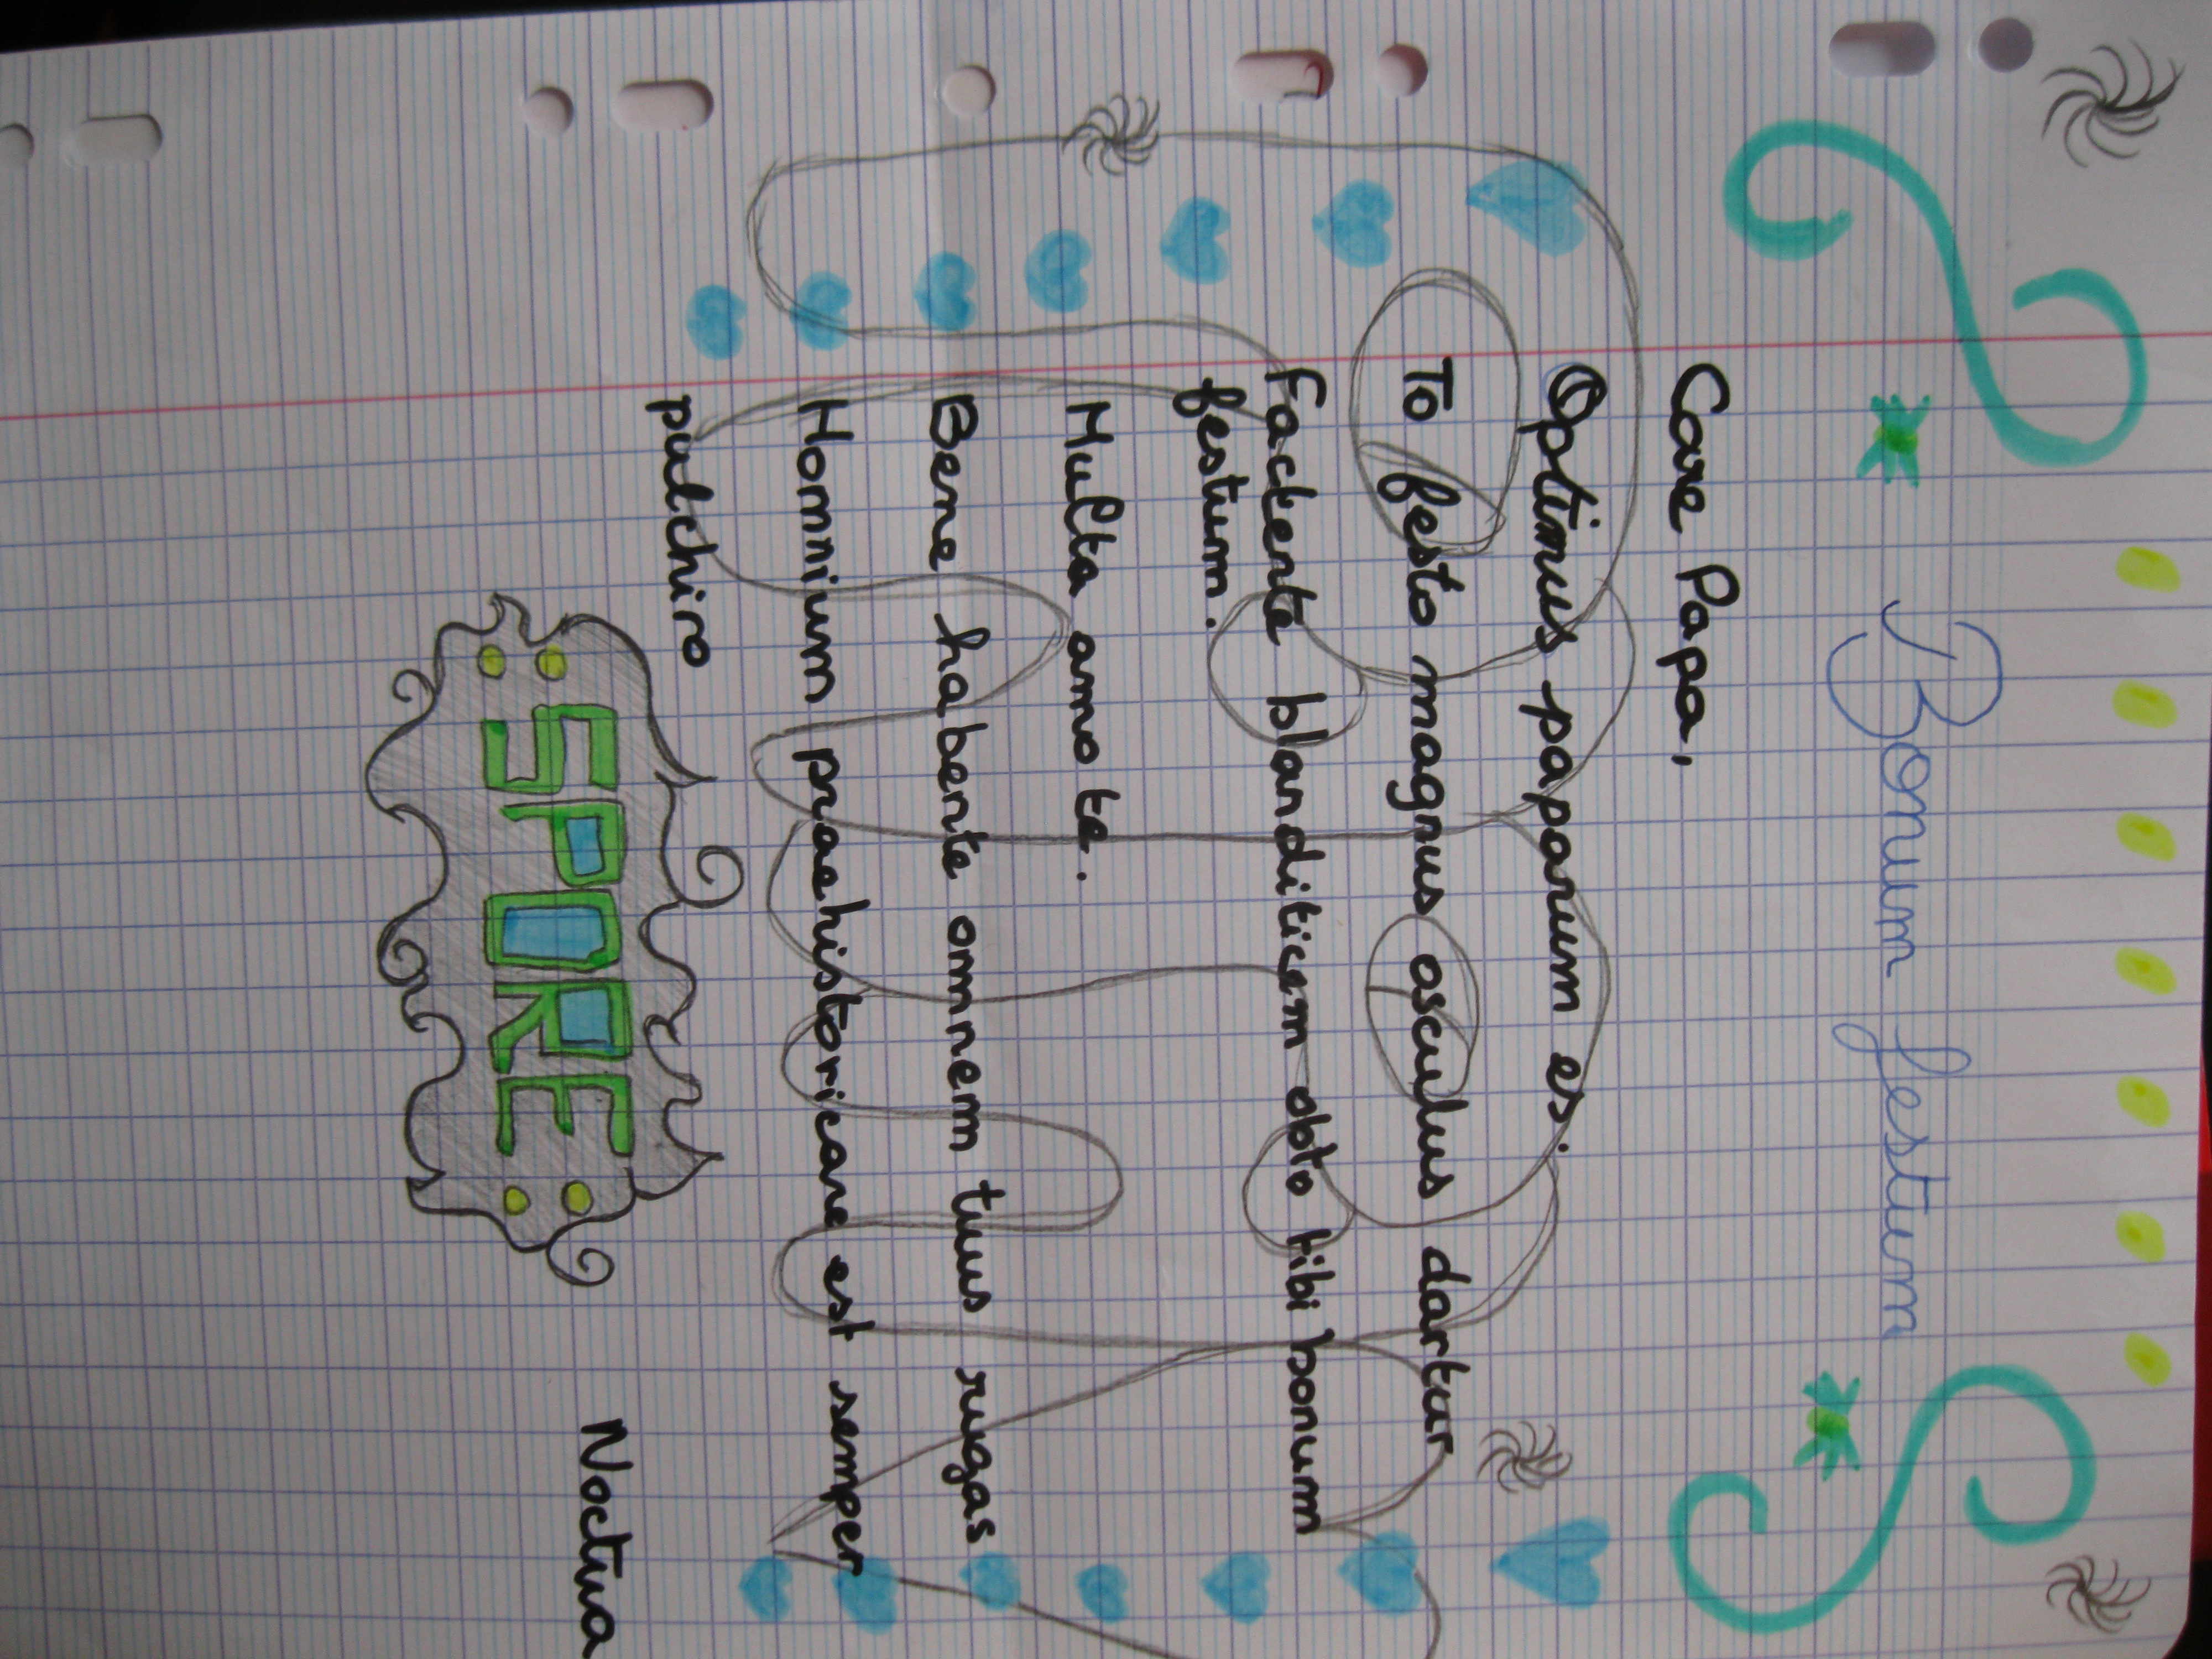 Bonum festum
Care Papa,
Optimus paparum es.
To festo magnus osculus dartur
Factente blanditicem obto tibi bonum
festum.
Multa amo te.
Bene habente omnem tuus rugas
Homnium praehistoricare est semper
pulchiro
SPORE
Noctua